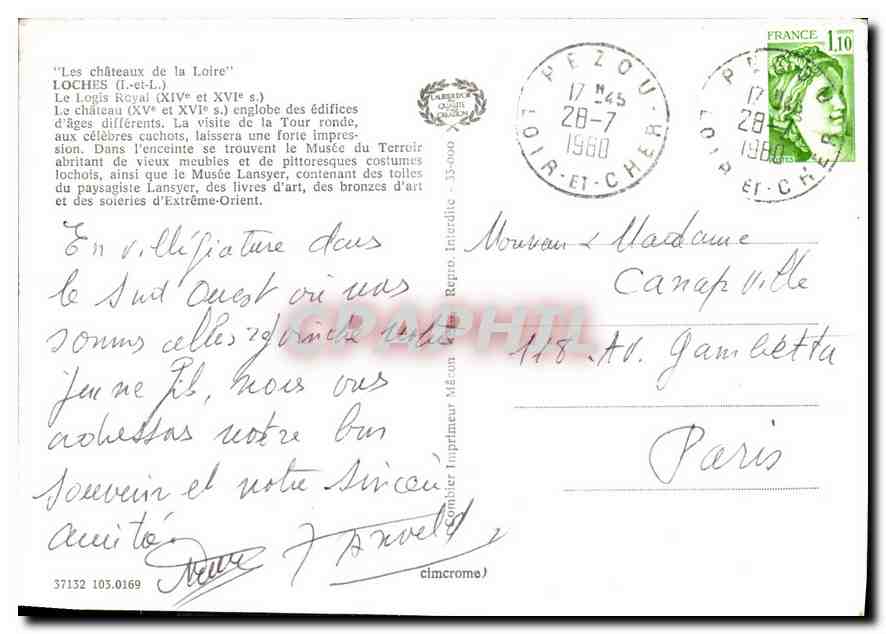 "Les châteaux de la Loire"
LOCHES (I.-et-L.)
Le Logis Royal (XIVe et XVIe s.)
Le château (XVe et XVIe s.) englobe des édifices
d'âges différents. La visite de la Tour ronde,
aux célèbres cachots, laissera une forte impres-
sion. Dans l'enceinte se trouvent le Musée du Terroir
abritant de vieux meubles et de pittoresques costumes
lochois, ainsi que le Musée Lansyer, contenant des toiles
du paysagiste Lansyer, des livres d'art, des bronzes d'art
et des soieries d'Extrême-Orient.
En villégiature dans
le Sud Ouest où nous
sommes allés rejoindre notre
jeune fils, nous vous
adressons notre bon
souvenir et notre sincère
amitié.
37132 103.0169
LAURIER D'OR
DE LA
QUALITÉ
CRÉATION
Combier Imprimeur Mâcon
Repro. Interdite - 35-000
cimcrome)
CPAPHIL
PEZOU
17 H -45
28-7
1980
LOIR-ET-CHER
FRANCE
1,10
POSTES
17 H -45
28-
1980
LOIR-ET-CHER
Monsieur & Madame
Canapville
118. Av. Gambetta
Paris